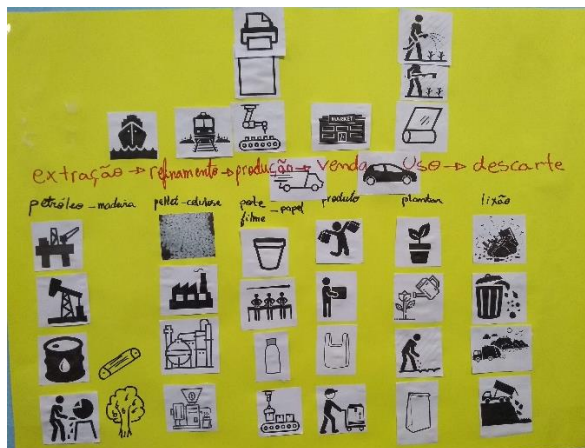 MARKET
extração → refinamento → produção → venda → uso → descarte
petróleo - madeira pellet - celulose pote - papel produto plantar lixão
filme